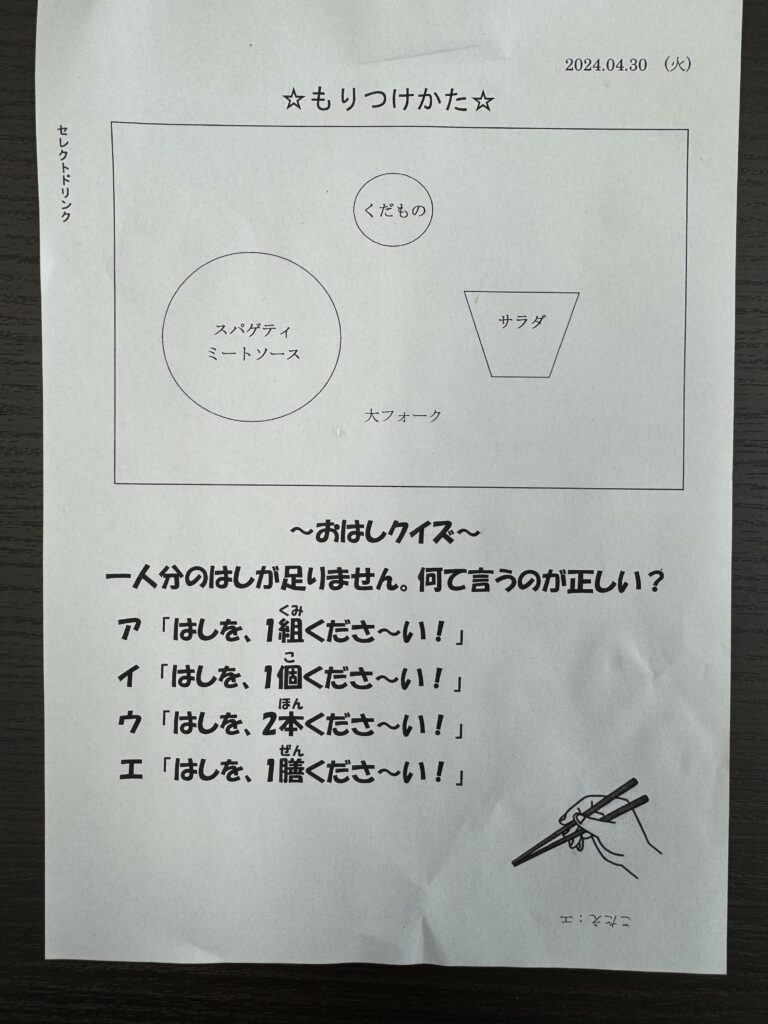 2024.04.30 (火)
☆もりつけかた☆
セレクトドリンク
くだもの
スパゲティ
ミートソース
サラダ
大フォーク
～おはしクイズ～
一人分のはしが足りません。何て言うのが正しい？
ア「はしを、1組くださ～い！」
くみ
イ「はしを、1個くださ～い！」
こ
ウ「はしを、2本くださ～い！」
ほん
エ「はしを、1膳くださ～い！」
ぜん
こたえ：エ